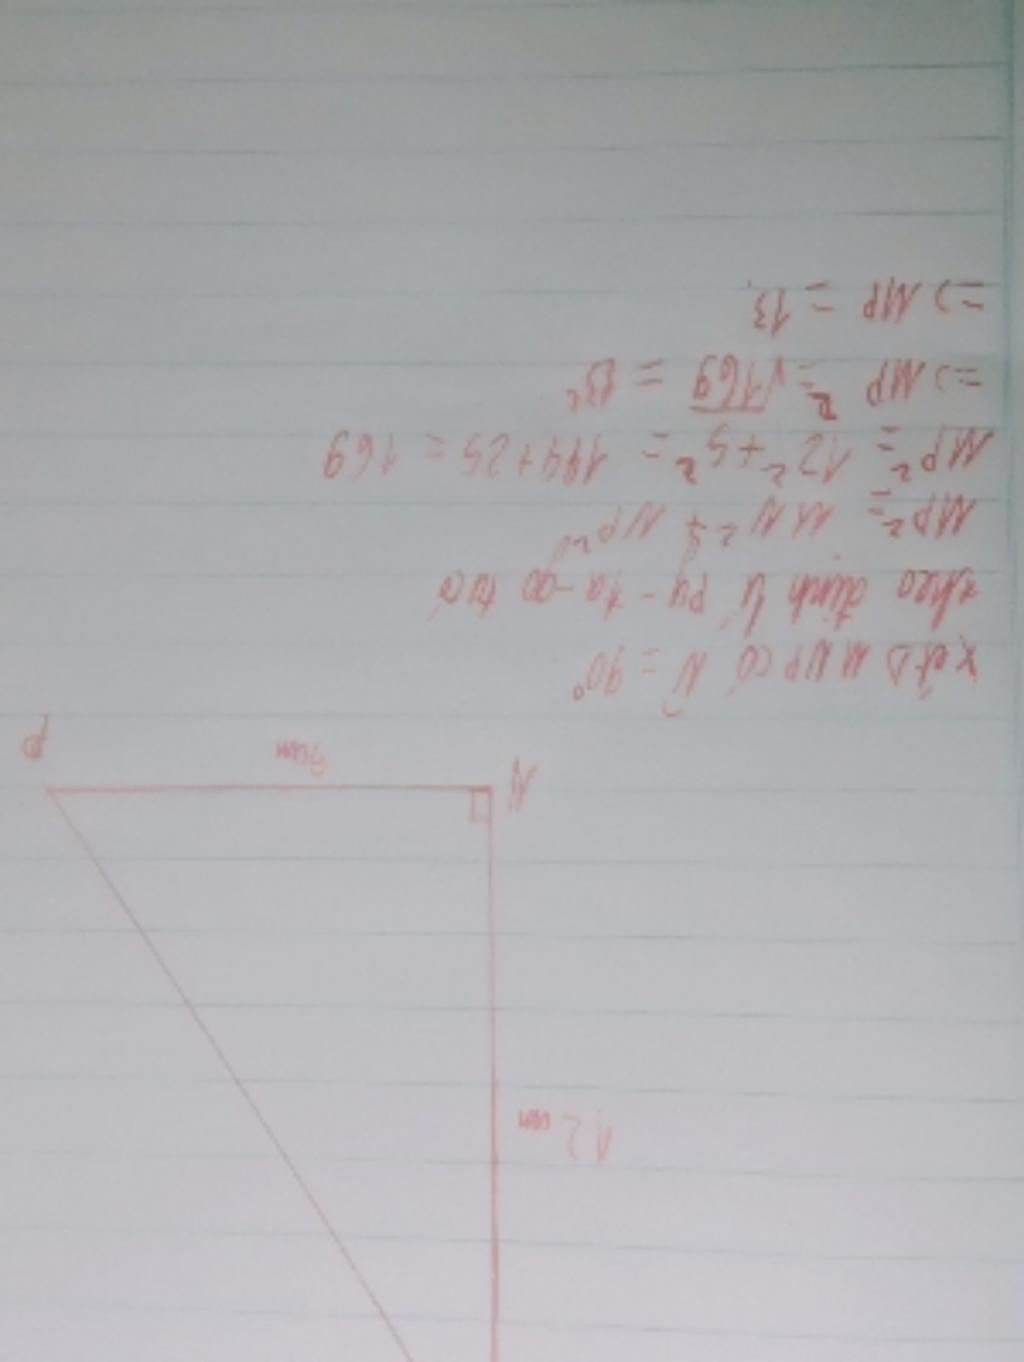 12 cm
N
5cm
P
xét Δ MNP có N̂ = 90°
theo định lí py-ta-go ta có
MP² = MN² + NP²
MP² = 12² + 5² = 144 + 25 = 169
=> MP² = √169 = 13²
=> MP = 13.